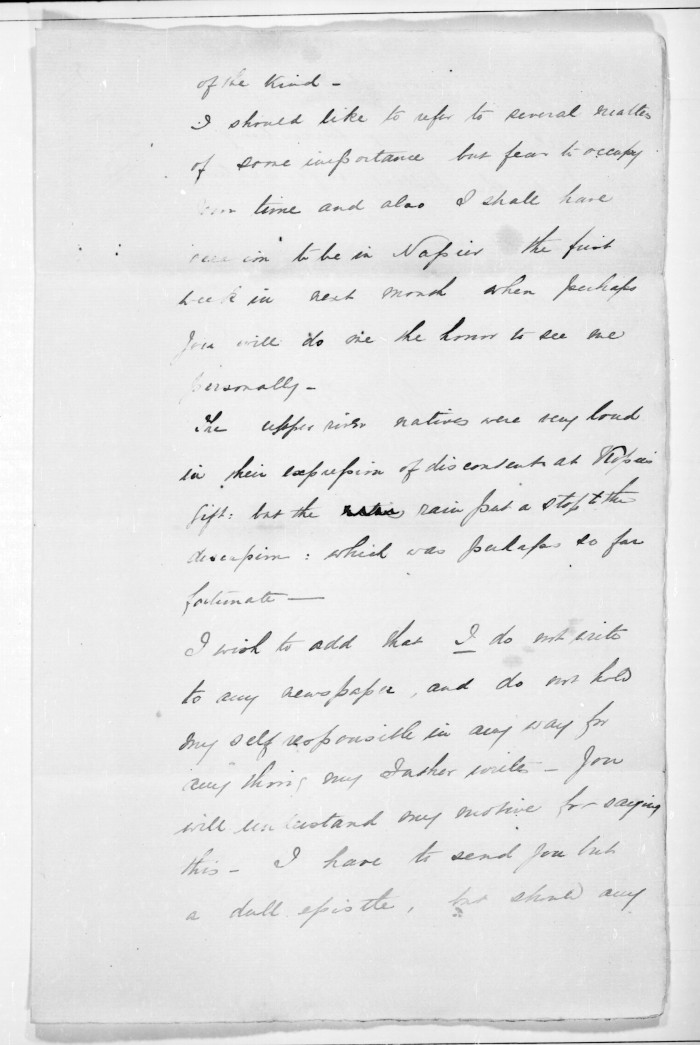 of the kind -
I should like to refer to several matters
of some importance but fear to occupy
your time and also I shall have
occasion to be in Napier the first
week in next month when perhaps
you will do me the honor to see me
personally -
The upper river natives were very loud
in their expression of discontent at
gift: but the rain put a stop to the
discussion: which was perhaps so far
fortunate —
I wish to add that I do not write
to any newspaper, and do not hold
my self responsible in any way for
any thing my Father writes - You
will understand my motive for saying
this - I have to send you but
a dull epistle, but should any